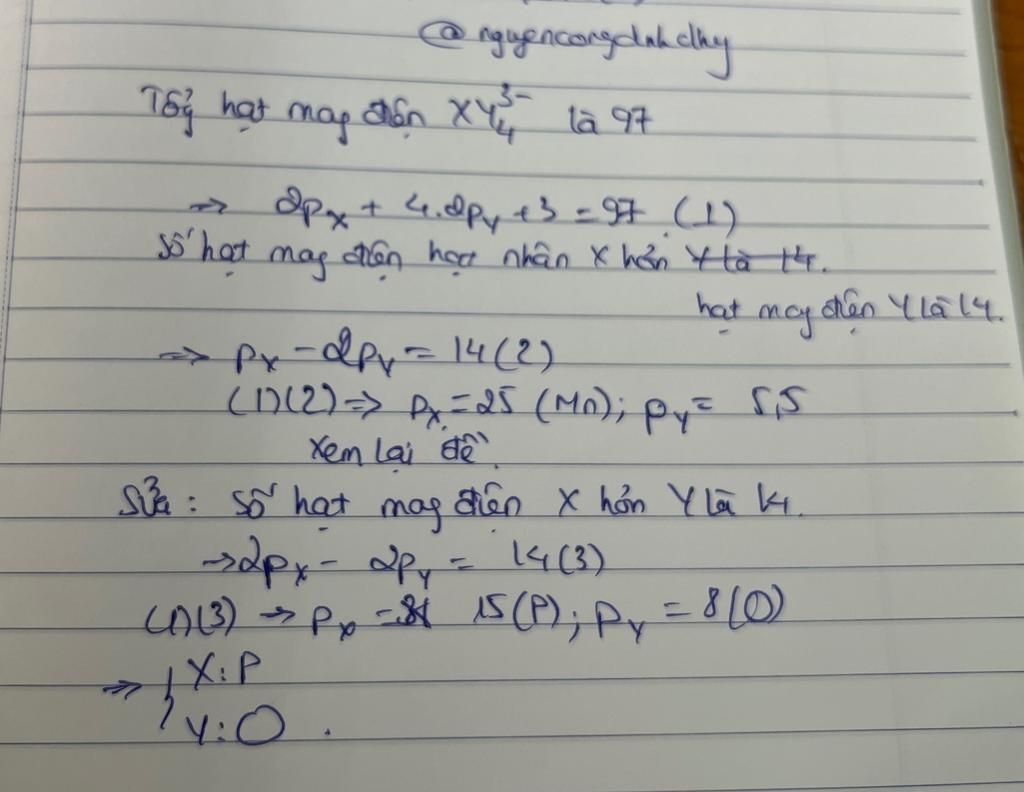 @nguyencongdnhdhy
Tổg hạt mag điện XY₄³⁻ là 97
=> 2pX + 4.2pY + 3 = 97 (1)
Số hạt mag điện hạt nhân X hơn Y là 14.
hạt mag điện Y là 14.
=> pX - 2pY = 14 (2)
(1)(2) => pX = 25 (Mn); pY = 5,5
Xem lại đề.
Sửa: Số hạt mag điện X hơn Y là 14.
→ 2pX - 2pY = 14 (3)
(1)(3) → pX = 15 (P); pY = 8 (O)
=> { X: P
Y: O.